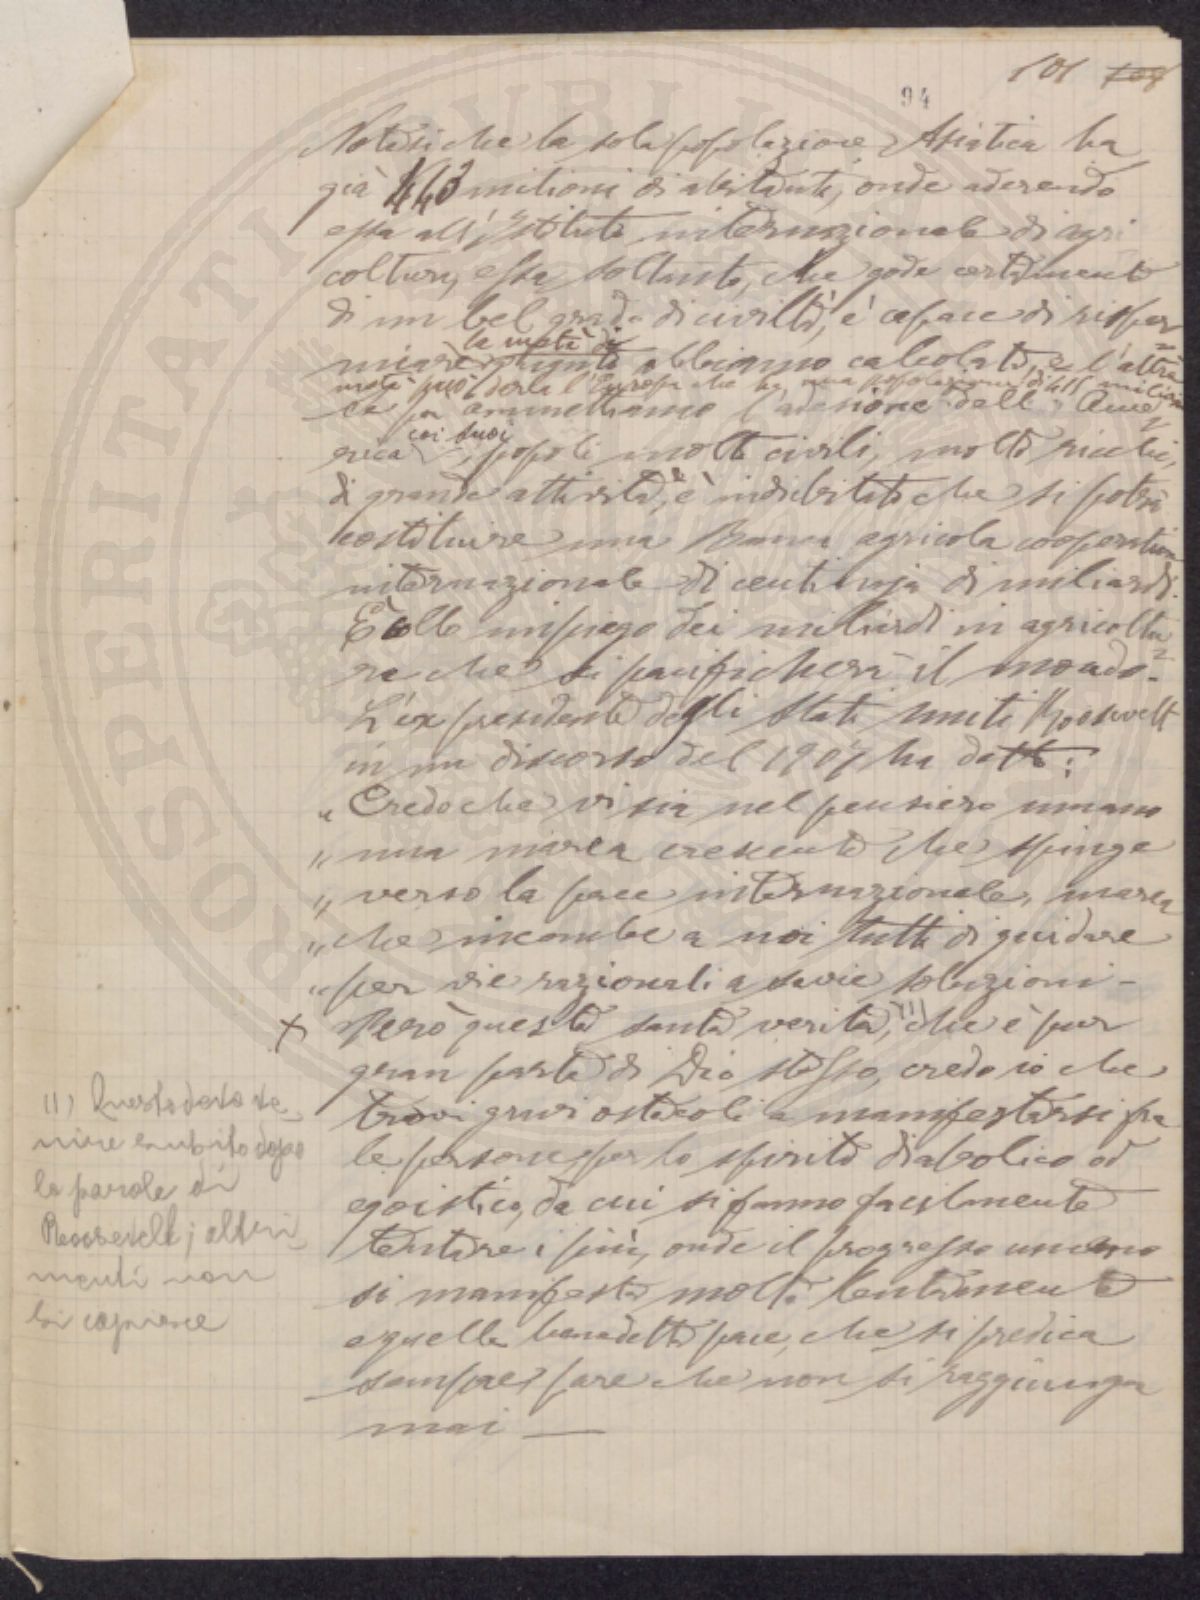 101 108
94
Notasi che la sola popolazione Asiatica ha
già 443 milioni di abitanti, onde aderendo
essa all'Istituto internazionale di agri
coltura, essa soltanto, che gode certamente
di un bel grado di civiltà, è capace di rispar
la metà di
miare quanto abbiamo calcolato, e l'altra
metà può darla l'Europa che ha una popolazione di 415 milioni
ammettiamo l'adesione dell'Ame
coi suoi
rica, popoli molto civili, molto ricchi,
di grande attività, è indubitato che si potrà
costituire una Banca agricola cooperativa
internazionale di centinaja di miliardi.
È collo impiego dei miliardi in agricoltu
ra che si pacificherà il mondo.
L'ex presidente degli Stati Uniti Roosevelt
in un discorso del 1907 ha detto:
"Credo che vi sia nel pensiero umano
"una marea crescente che spinge
"verso la pace internazionale, marea
"che incombe a noi tutti di guidare
"per vie razionali a savie soluzioni -
x Però questa santa verità, (1) che è pur
gran parte di Dio stesso, credo io che
trovi gravi ostacoli a manifestarsi fra
le persone per lo spirito diabolico od
egoistico, da cui si fanno facilmente
tentare i più, onde il progresso umano
si manifesta molto lentamente
e quella benedetta pace, che si predica
sempre, pare che non si raggiunga
mai —
(1) Questo deve ve
nire subito dopo
le parole di
Roosevelt; altri
menti non
si capisce